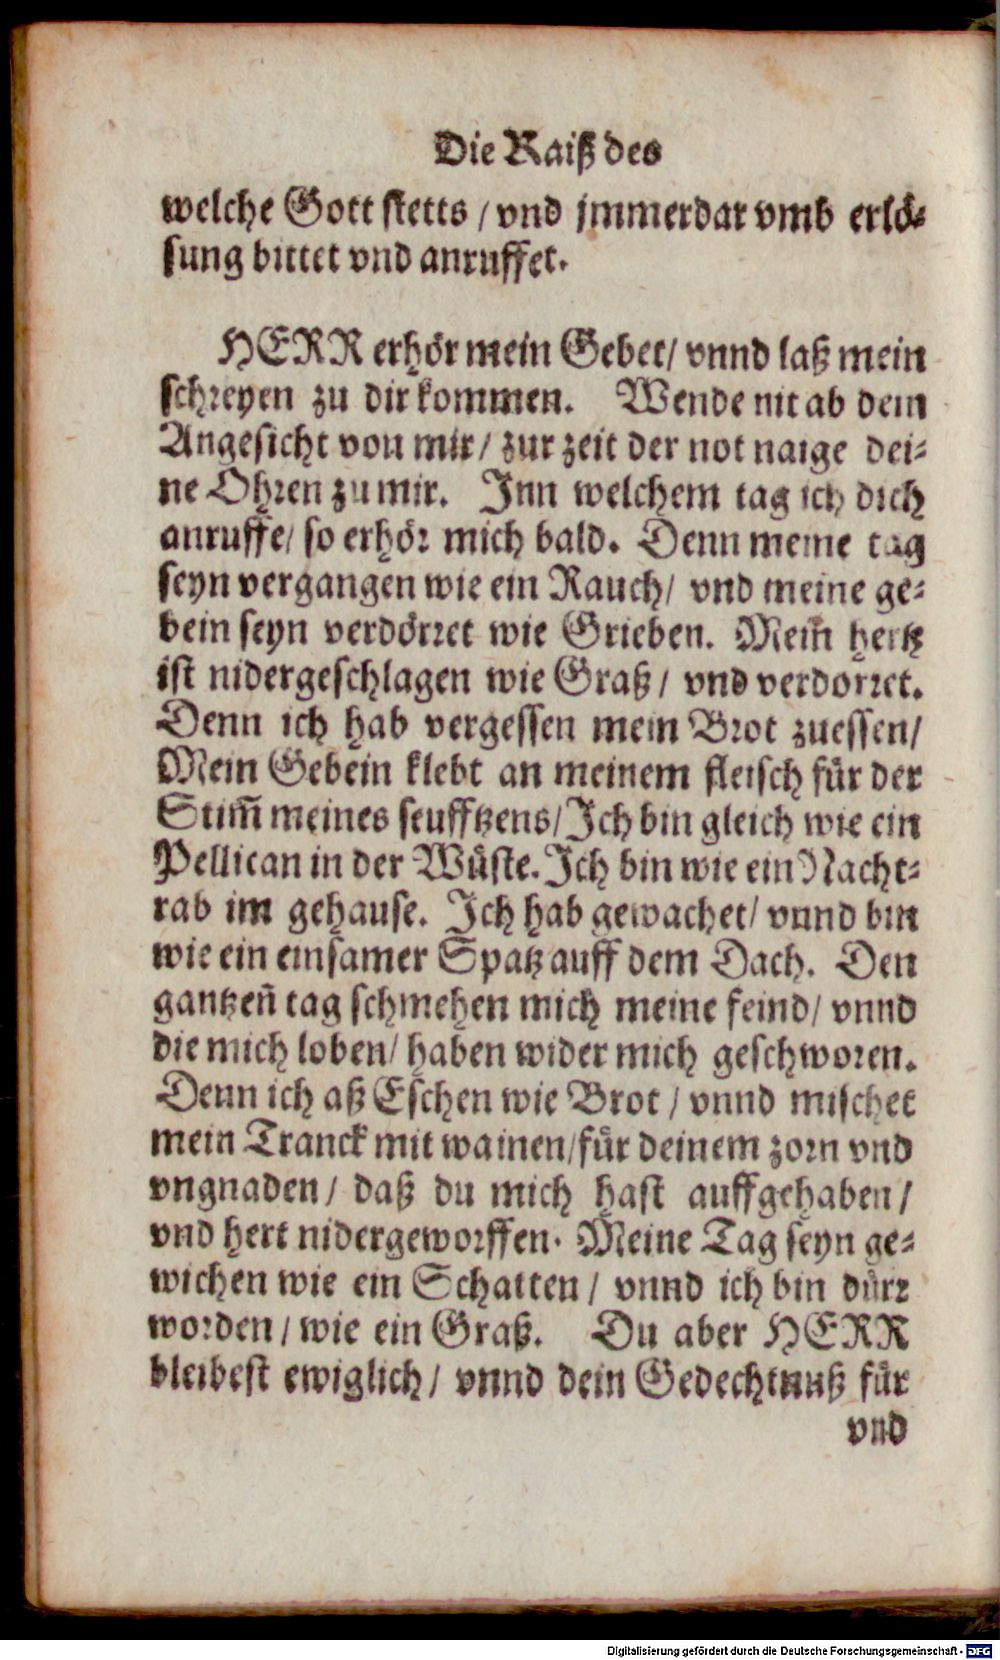 Die Raiß des
welche Gott stetts / vnd jmmerdar vmb erlö-
sung bittet vnd anruffet.
HERR erhör mein Gebet / vnnd laß mein
schreyen zu dir kommen. Wende nit ab dein
Angesicht von mir / zur zeit der not naige dei-
ne Ohren zu mir. Inn welchem tag ich dich
anruffe / so erhör mich bald. Denn meine tag
seyn vergangen wie ein Rauch / vnd meine ge-
bein seyn verdörret wie Grieben. Mein̄ hertz
ist nidergeschlagen wie Graß / vnd verdorret.
Denn ich hab vergessen mein Brot zuessen /
Mein Gebein klebt an meinem fleisch für der
Stim̄ meines seufftzens / Ich bin gleich wie ein
Pellican in der Wüste. Ich bin wie ein Nacht-
rab im gehause. Ich hab gewachet / vnnd bin
wie ein einsamer Spatz auff dem Dach. Den
gantzen̄ tag schmehen mich meine feind / vnnd
die mich loben / haben wider mich geschworen.
Denn ich aß Eschen wie Brot / vnnd mischet
mein Tranck mit wainen / für deinem zorn vnd
vngnaden / daß du mich hast auffgehaben /
vnd hert nidergeworffen. Meine Tag seyn ge-
wichen wie ein Schatten / vnnd ich bin dürr
worden / wie ein Graß. Du aber HERR
bleibest ewiglich / vnnd dein Gedechtnuß für
vnd
Digitalisierung gefördert durch die Deutsche Forschungsgemeinschaft - DFG